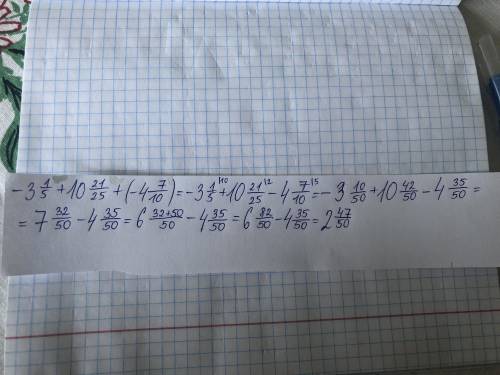 -3 1/5 + 10 21/25 + (-4 7/10) = -3 1/5 \10 + 10 21/25 \2 - 4 7/10 \5 = -3 10/50 + 10 42/50 - 4 35/50 =
= 7 32/50 - 4 35/50 = 6 32+50/50 - 4 35/50 = 6 82/50 - 4 35/50 = 2 47/50